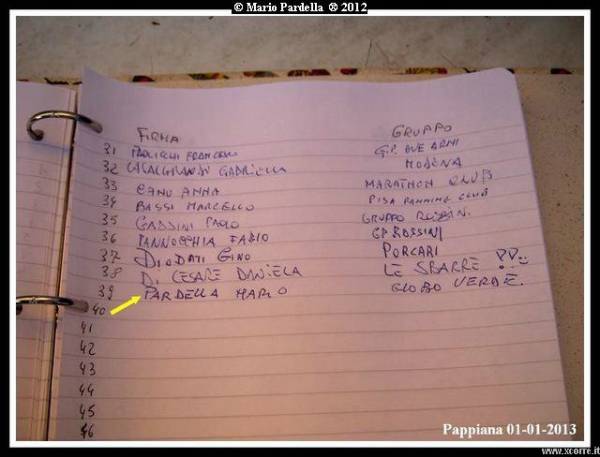 © Mario Pardella ® 2012
FIRMA GRUPPO
31 PAOLICCHI FRANCESCO G.P. DUE ARNI
32 CASALGRANDI GABRIELLA MODENA
33 CANU ANNA MARATHON CLUB
34 BASSI MARCELLO PISA RUNNING CLUB
35 GABBINI PAOLO GRUPPO
36 PANNOCCHIA FABIO GP ROSSINI
37 DIODATI GINO PORCARI
38 DI CESARE DANIELA LE SBARRE !!
39 PARDELLA MARIO GLOBO VERDE.
40
41
42
43
44
45
46
Pappiana 01-01-2013
www.xcorre.it